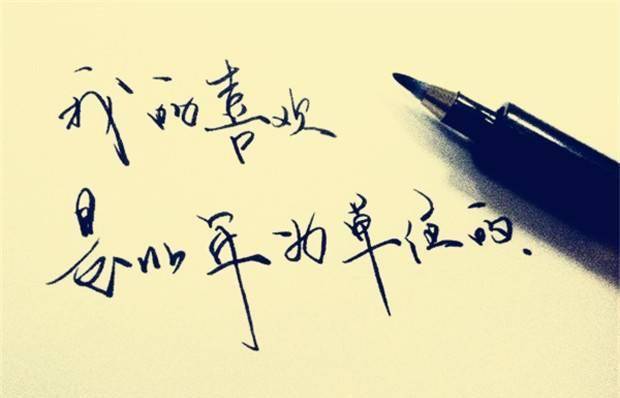 我的喜欢
是以年为单位的.